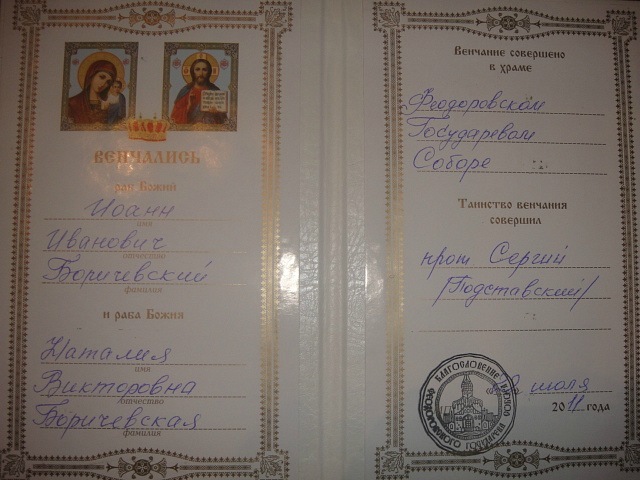 ВЕНЧАЛИСЬ
раб Божий
Иоанн
имя
Иванович
отчество
Боричевский
фамилия
и раба Божия
Наталия
имя
Викторовна
отчество
Боричевская
фамилия
Венчание совершено
в храме
Феодоровском
Государевом
Соборе
Таинство венчания
совершил
прот Сергий
/Подставский/
июля
2011 года
БЛАГОСЛОВЕНИЕ